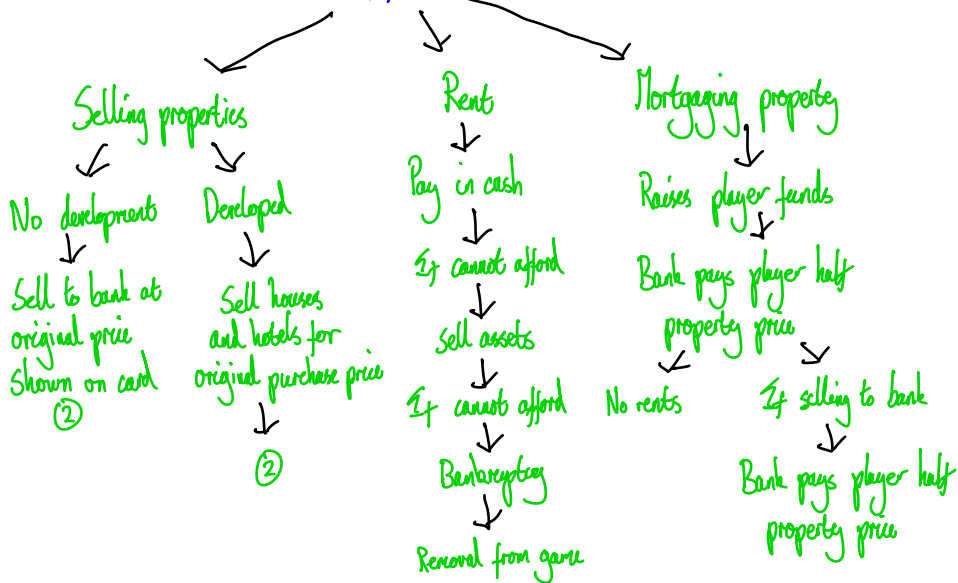 Selling properties
No development
Sell to bank at
original price
shown on card
②
Developed
Sell houses
and hotels for
original purchase price
②
Rent
Pay in cash
If cannot afford
Sell assets
If cannot afford
Bankcryptcy
Removal from game
Mortgaging property
Raises player funds
Bank pays player half
property price
No rents
If selling to bank
Bank pays player half
property price